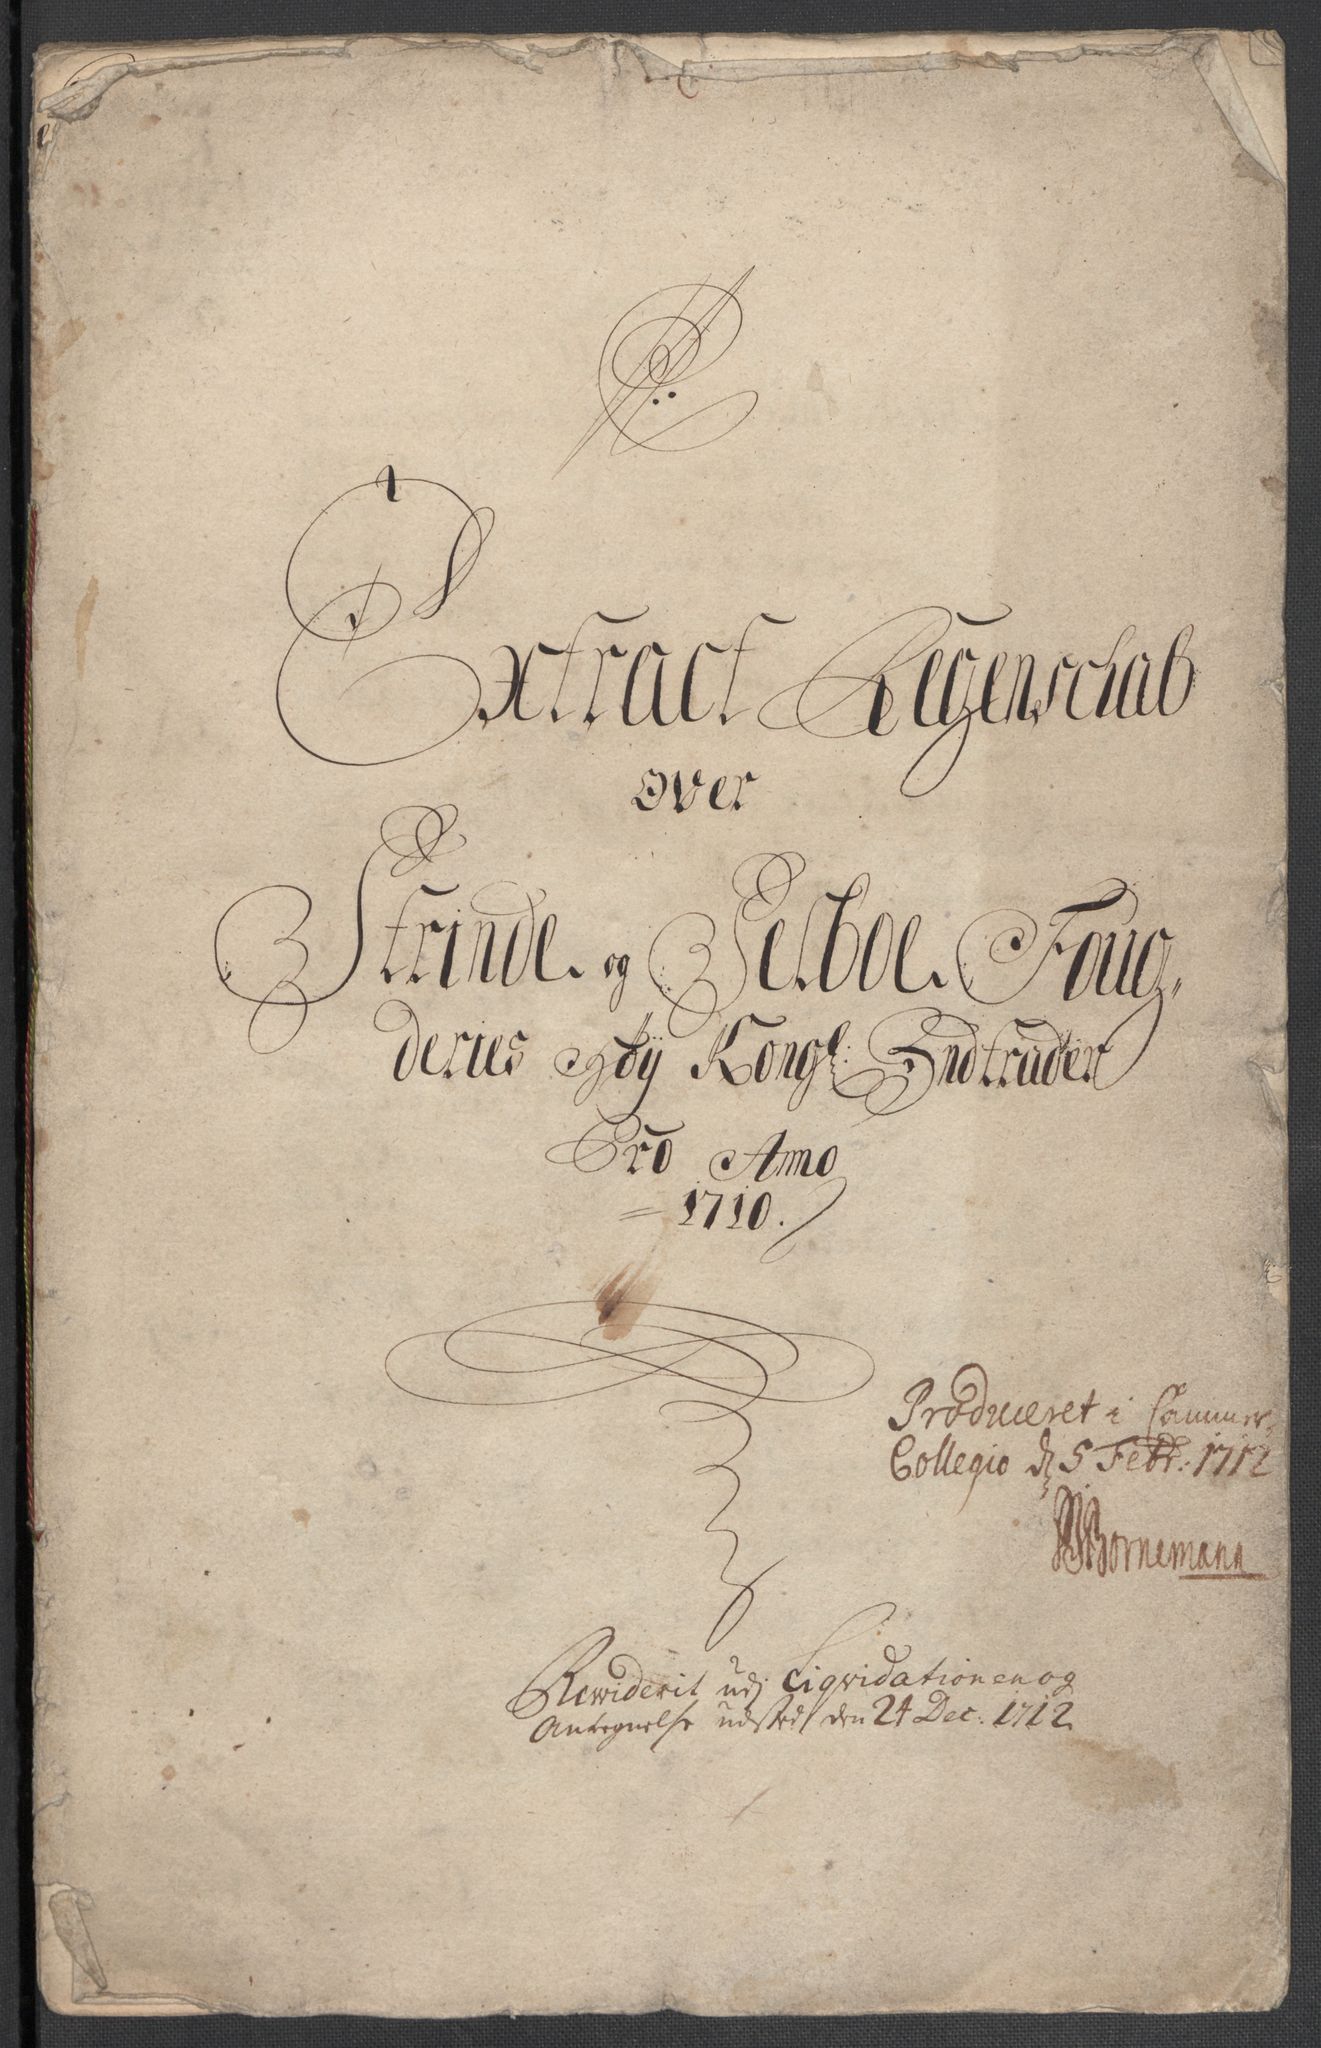 Extract Regenschab
over
Strinde og Selboe Foug-
deries Høÿ Kongl: Indtrader
Pro Anno
1710.
Produceret i Cammer-
Collegio d. 5 Febr: 1712
Bornemann
Rewiderit udj Liqvidationen og
Antegnelse udsted den 24 Dec. 1712